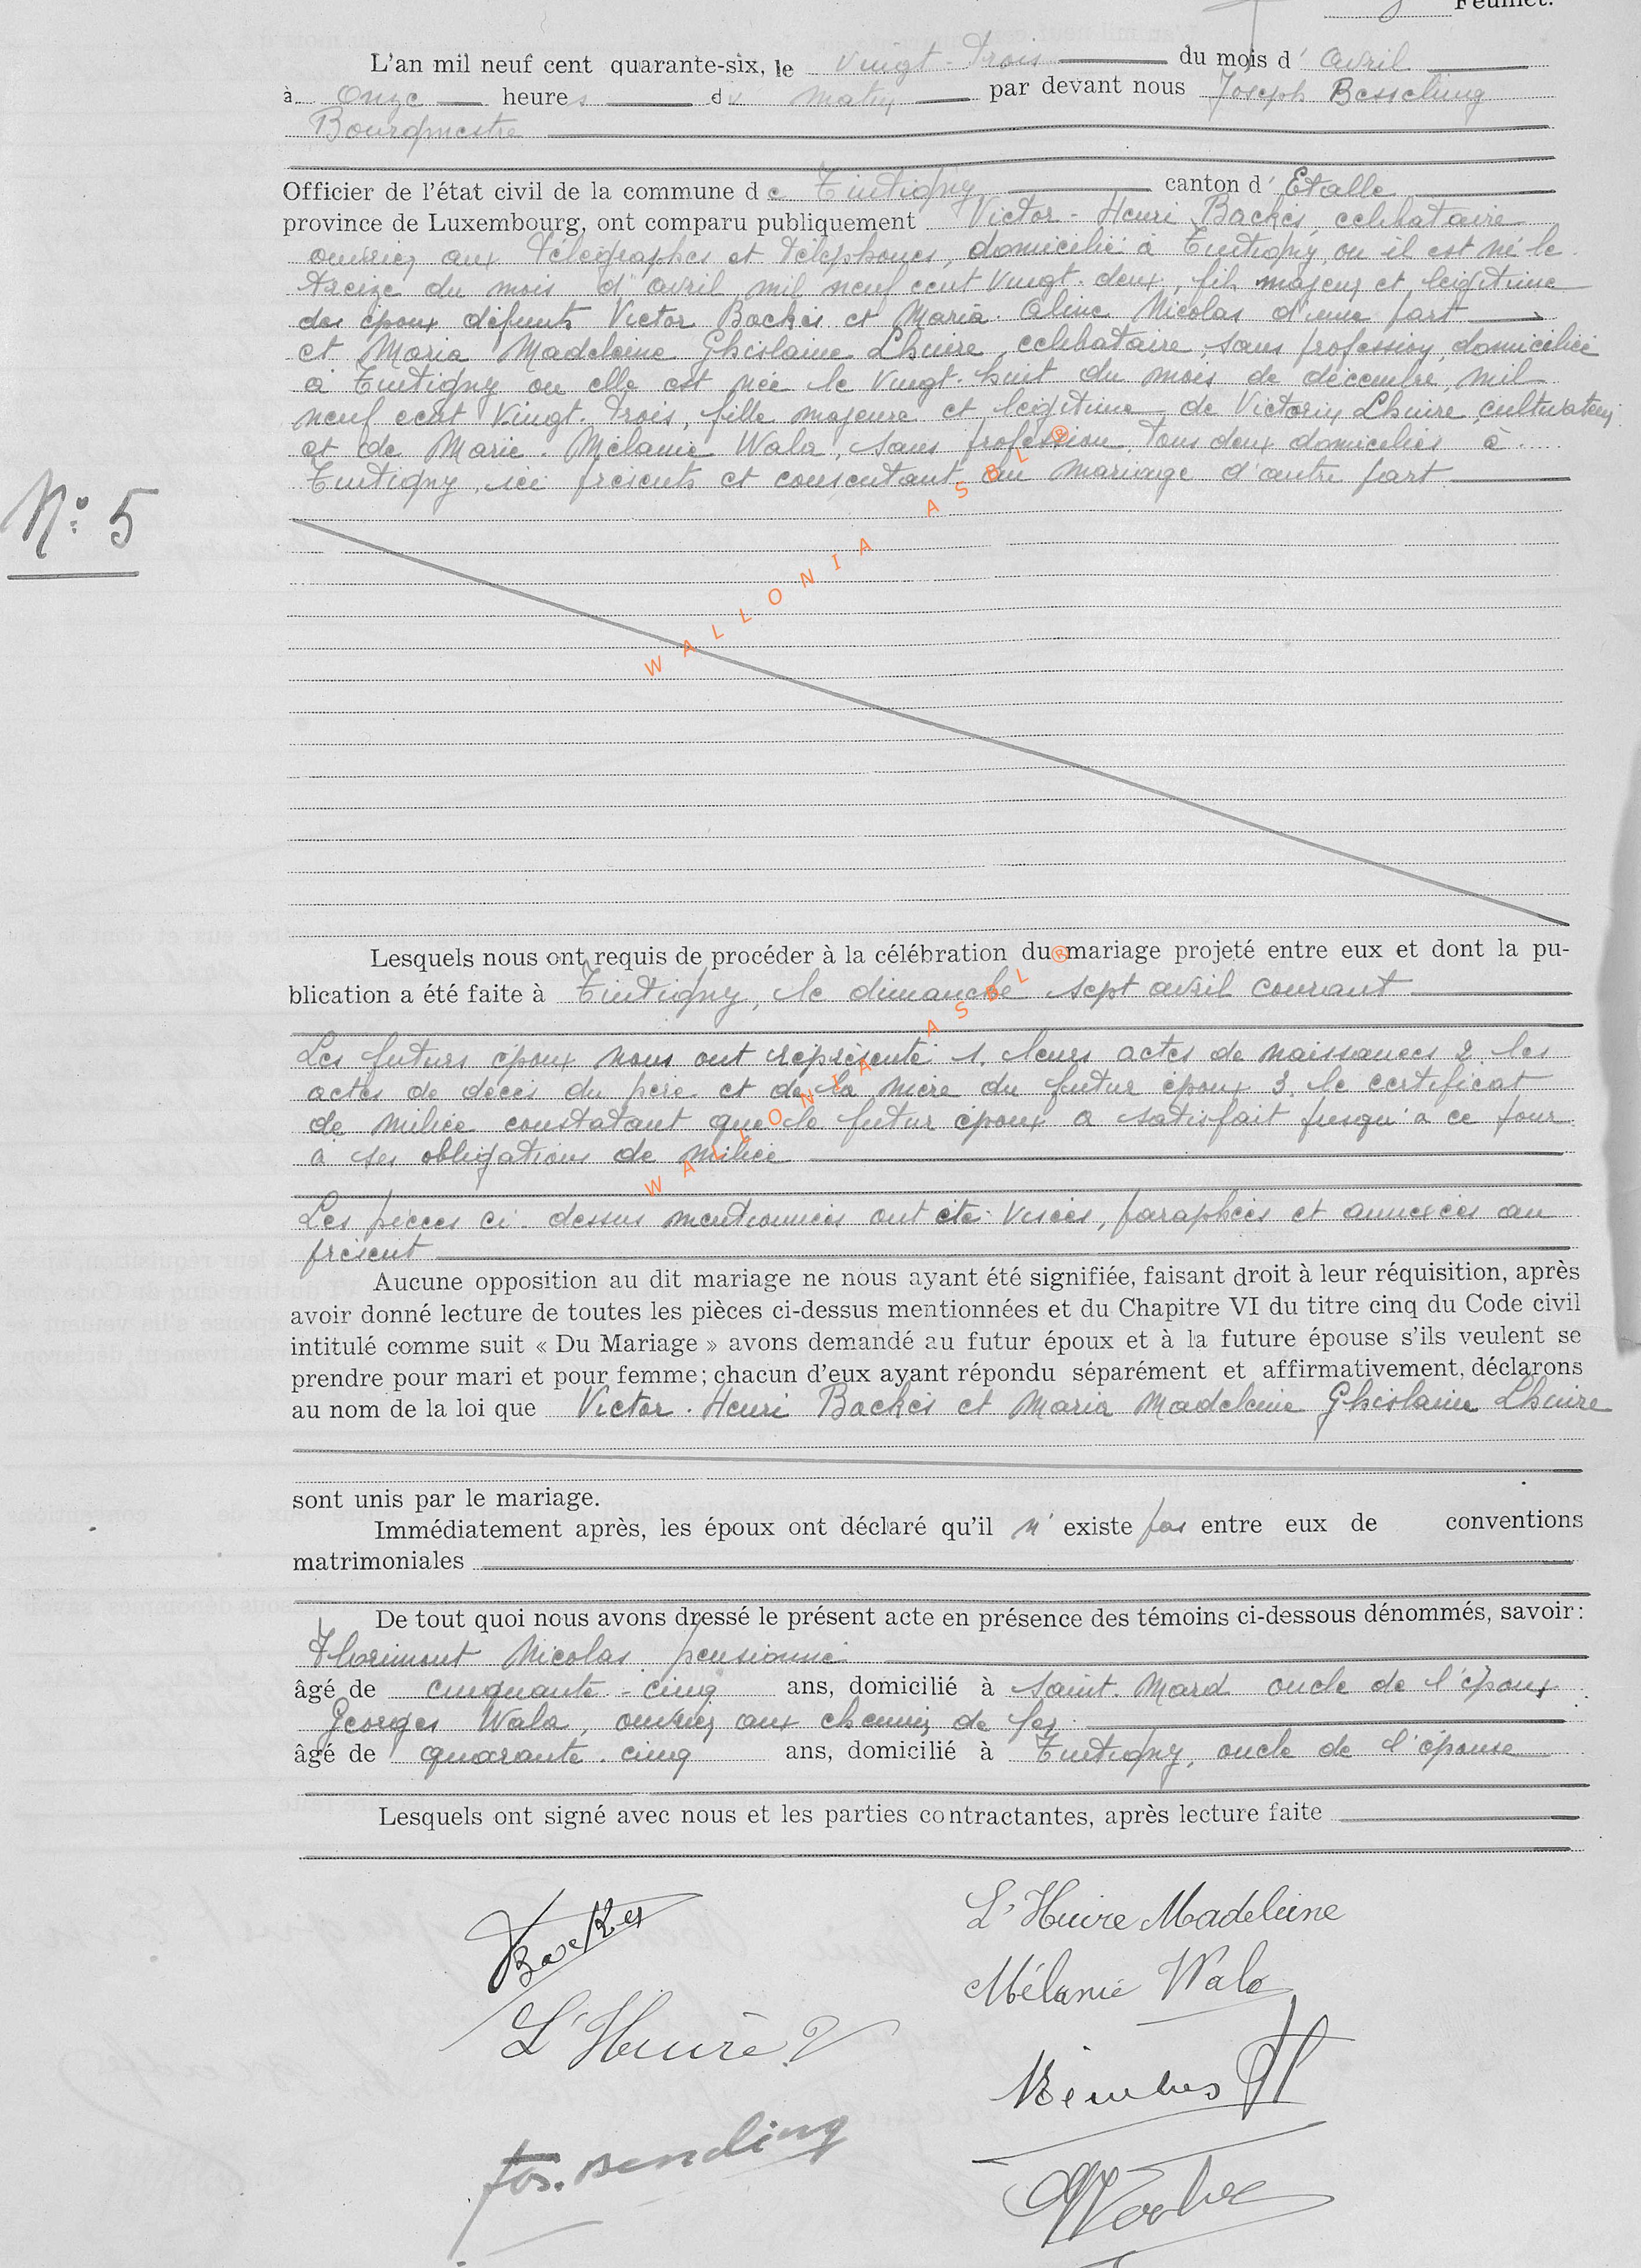 Feuillet.
L'an mil neuf cent quarante-six, le vingt-trois du mois d'avril
à onze heures du matin par devant nous Joseph Bessling
Bourgmestre
Officier de l'état civil de la commune de Tintigny canton d'Etalle
province de Luxembourg, ont comparu publiquement Victor-Henri Backès, célibataire
ouvrier aux Télégraphes et Téléphones, domicilié à Tintigny, ou il est né le
treize du mois d'avril mil neuf cent vingt-deux, fils majeur et légitime
des époux défunts Victor Backès et Maria-Aline Nicolas d'une part
et Maria Madeleine Ghislaine Lhuire, célibataire, sans profession, domiciliée
à Tintigny ou elle est née le vingt-huit du mois de décembre mil
neuf cent vingt-trois, fille majeure et légitime de Victorin Lhuire, cultivateur
et de Marie-Mélanie Wala, sans profession. tous deux domiciliés à
Tintigny, ici présents et consentant au mariage d'autre part
N° 5
WALLONIA ASBL ®
Lesquels nous ont requis de procéder à la célébration du mariage projeté entre eux et dont la pu-
blication a été faite à Tintigny, le dimanche sept avril courant
Les futurs époux nous ont représenté 1. leurs actes de naissances 2. les
actes de décès du père et de la mère du futur époux 3. le certificat
de milice constatant que le futur époux a satisfait jusqu'à ce jour
à ses obligations de milice
WALLONIA ASBL ®
Les pièces ci-dessus mentionnées ont été visées, paraphées et annexées au
présent
Aucune opposition au dit mariage ne nous ayant été signifiée, faisant droit à leur réquisition, après
avoir donné lecture de toutes les pièces ci-dessus mentionnées et du Chapitre VI du titre cinq du Code civil
intitulé comme suit « Du Mariage » avons demandé au futur époux et à la future épouse s'ils veulent se
prendre pour mari et pour femme; chacun d'eux ayant répondu séparément et affirmativement, déclarons
au nom de la loi que Victor-Henri Backès et Maria Madeleine Ghislaine Lhuire
sont unis par le mariage.
Immédiatement après, les époux ont déclaré qu'il n'existe pas entre eux de conventions
matrimoniales
De tout quoi nous avons dressé le présent acte en présence des témoins ci-dessous dénommés, savoir:
Florimont Nicolas pensionné
âgé de cinquante-cinq ans, domicilié à Saint-Mard oncle de l'époux
Georges Wala, ouvrier aux chemins de fer
âgé de quarante-cinq ans, domicilié à Tintigny, oncle de l'épouse
Lesquels ont signé avec nous et les parties contractantes, après lecture faite
Backes
L'Huire Madeleine
Mélanie Wala
L'Huire V